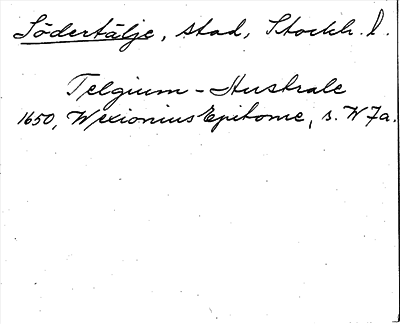 Södertälje, stad, Stockh. l.
Telgium-Australe
1650, Wexionius Epitome, s. N 7a.